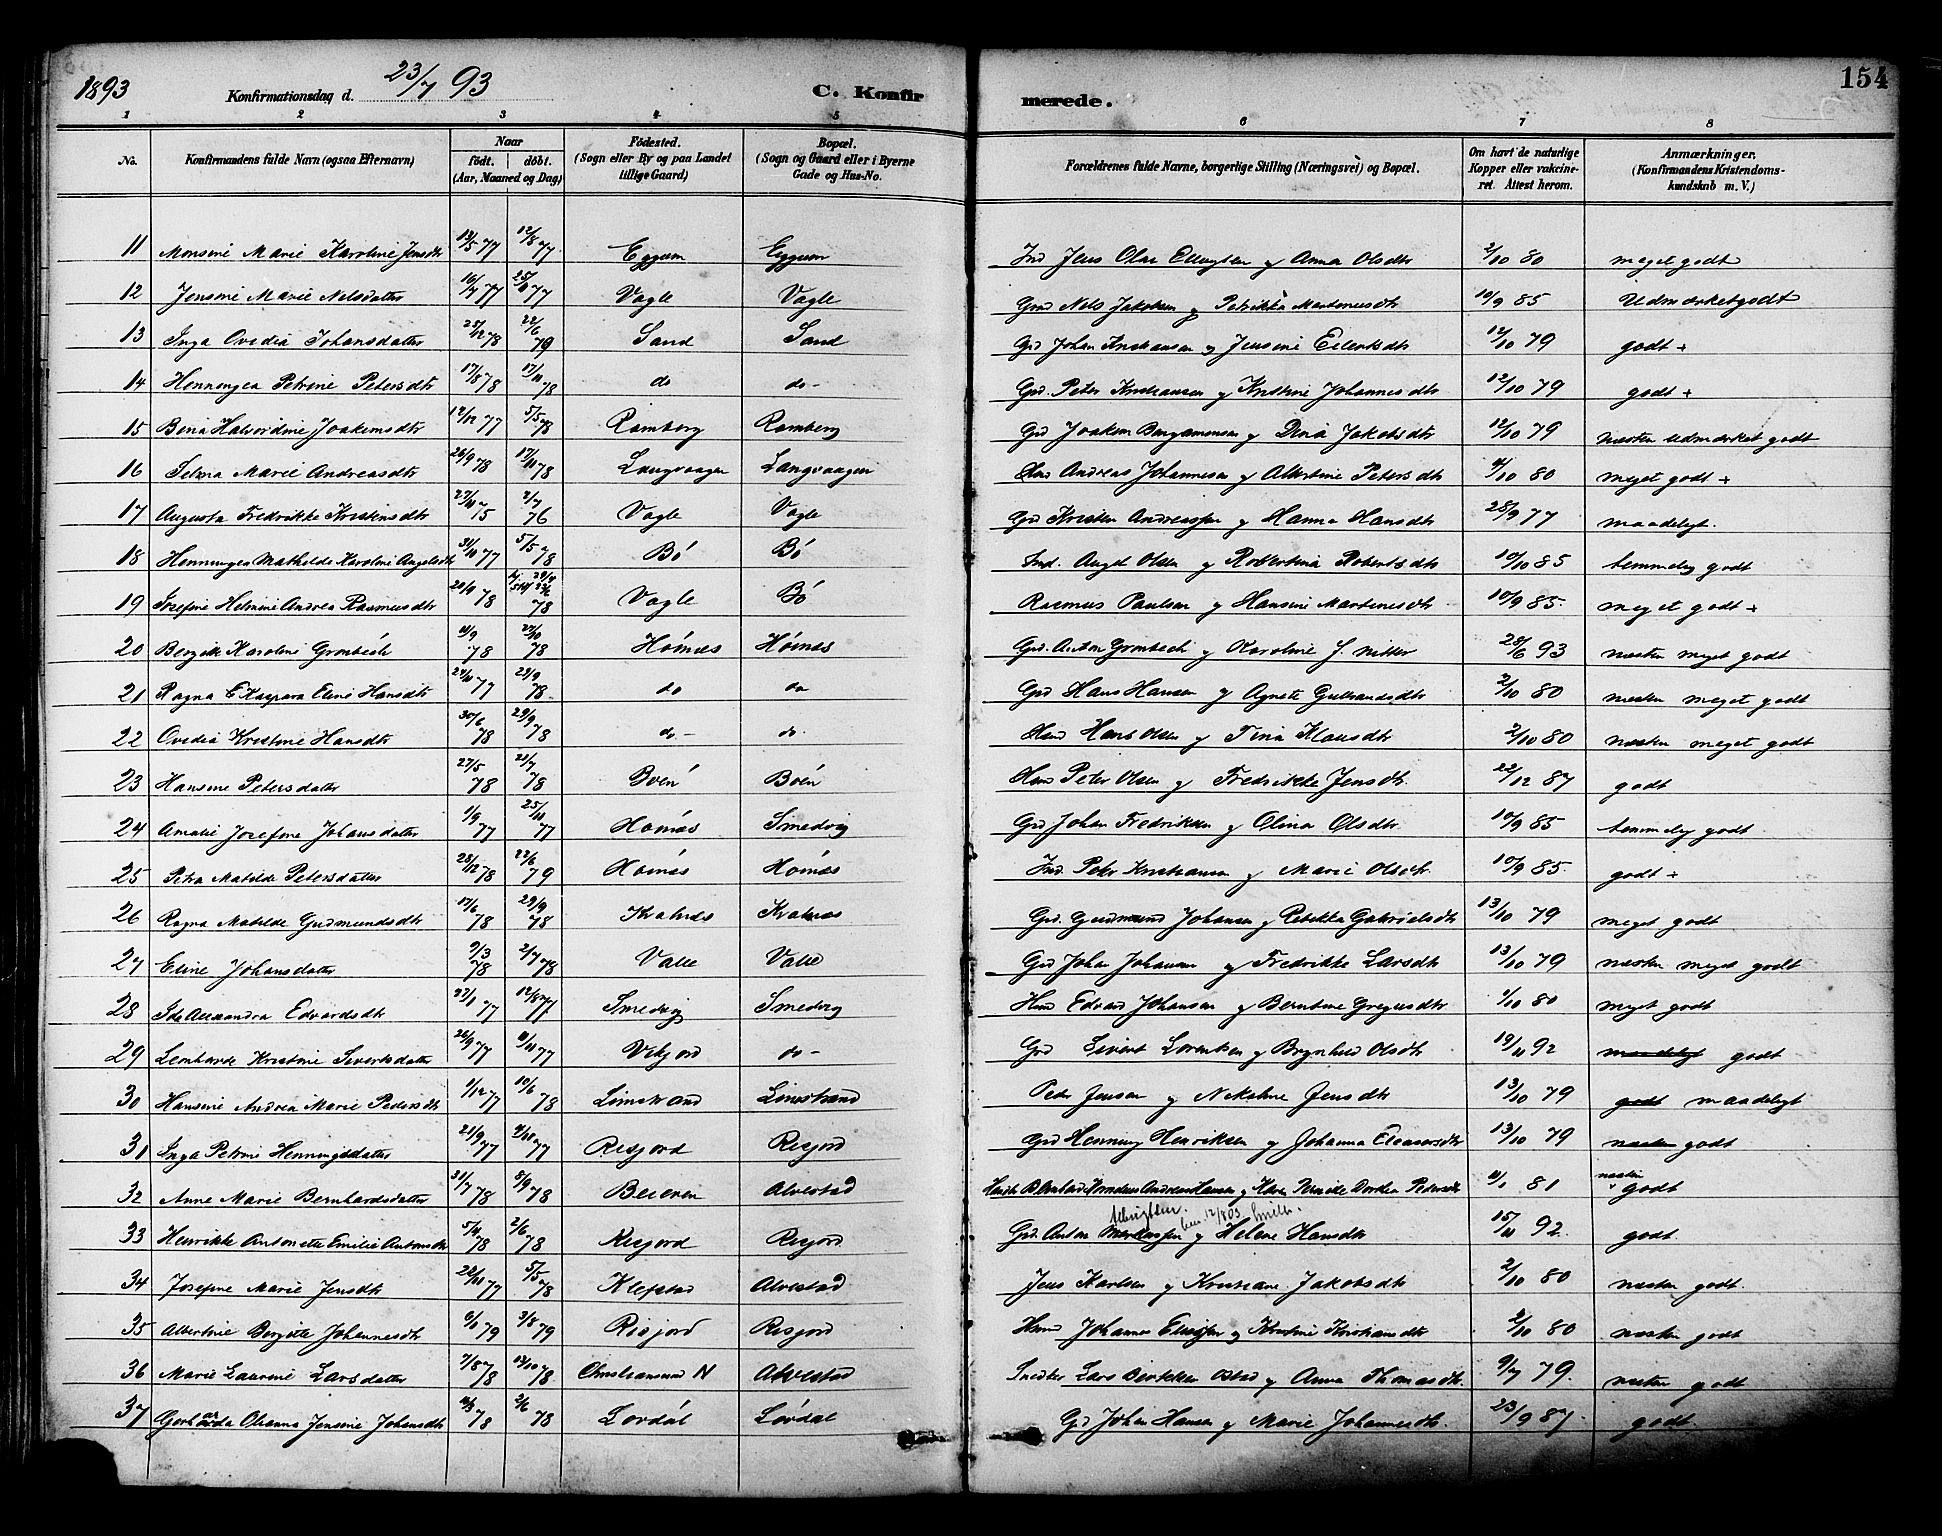 1893 Konfirmationsdag d. 23/7 93 C. Konfirmerede. 154
1 2 3 4 5 6 7 8
No. Konfirmandens fulde Navn (ogsaa Efternavn) Naar födt. döbt. (Aar, Maaned og Dag) Födested. (Sogn eller By og paa Landet tillige Gaard) Bopæl. (Sogn og Gaard eller i Byerne Gade og Hus-No. Forældrenes fulde Navne, borgerlige Stilling (Næringsvei) og Bopæl. Om havt de naturlige Kopper eller vakcineret. Attest herom. Anmærkninger. (Konfirmandens Kristendomskundskab m. V.)
11 Monsine Marie Karoline Jensdtr 13/5 77 12/8 77 Eggum Eggum Ind Jens Olai Ellingsen og Anna Olsdtr 2/10 80 meget godt
12 Jensine Marie Nelsdatter 16/7 77 25/11 77 Vagle Vagle Grd Nels Jakobsen og Petrikka Martinusdtr 10/9 85 Udmærketgodt
13 Inga Ovedia Johansdatter 25/12 78 22/6 79 Sand Sand Grd Johan Kristiansen og Jensine Eilertsdtr 12/10 79 godt +
14 Henningea Petrine Petersdtr 17/8 78 17/11 78 do do - Grd. Peter Kristiansen og Kristine Johannesdtr 12/10 79 godt +
15 Beria Halvordine Joakemsdtr 12/12 77 5/5 78 Ramberg Ramberg Grd Joakem Bengamensen og Dina Jakobsdtr 12/10 79 næsten udmærket godt
16 Selma Marie Andreasdtr 26/9 78 17/11 78 Langvaagen Langvaagen Hmd Andreas Johannesen og Albertine Petersdtr 4/10 80 meget godt +
17 Augusta Fredrikke Kristensdtr 27/11 75 2/7 76 Vagle Vagle Grd Kristen Andreassen og Hanna Hansdtr 28/9 77 maadeligt.
18 Henningea Mathilde Karoline Angelsdtr 31/10 77 5/5 78 Bö Bö Ind. Angel Olsen og Robertina Robertsdtr 10/10 85 temmelig godt
19 Josefine Helmine Andrea Rasmusdtr 78 78 Vagle Bö Rasmus Paulsen og Hansine Martinesdtr 10/9 85. meget godt +
20 Bergitte Karoline Grönbech 11/9 78 27/10 78 Hömæs Höinæs Grd. Anton Grönbech og Karoline J. Nitter 28/6 93 næsten meget godt
21 Ragna E Kaspara Eline Hansdtr 77 29/9 78. do do Grd Hans Hansen og Agnete Gulbrandsdtr 2/10 80 næsten meget godt
22 Ovedia Kristine Hansdtr 30/6 78 29/9 78 do - do. Hmd Hans Olsen og Tina Klausdtr 2/10 80 næsten meget godt
23 Hansine Petersdatter 27/5 78 21/7 78 Böen Böen Hmd Peter Olsen og Fredrikke Jensdtr. 22/12 87 godt
24 Amalie Josefine Johansdatter 1/9 77 25/11 77 Homæs Smedvig Grd Johan Fredriksen og Olina Olsdtr. 10/9 85 temmelig godt
25 Petra Matilde Petersdatter 28/12 78 22/6 79 Höinæs Höinæs Ind. Peter Kristiansen og Marie Olsdtr. 10/9 85. godt +
26 Ragna Matilde Gudmundsdtr 17/6 78 29/9 78 Kvalnæs Kvalnæs Grd. Gudmund Johansen og Rebekka Gabrielsdtr 13/10 79 meget godt
27 Eline Johansdatter 9/3 78 2/7 78 Valle Valle Grd Johan Johansen og Fredrikke Larsdtr 13/10 79 næsten meget godt
28 Ida Alexandra Edvardsdtr 77 12/8 77 Smedvig Smedvig Hmd Edvard Johansen og Berntine Gregusdtr 1/10 80 meget godt
29 Leonharde Kristine Sivertsdatter 26/9 77 11/11 77 Vikjord do - Grd Sivert Lorentsen og Brynhild Olsdtr 19/11 92 maadeligt godt
30 Hansine Andrea Marie Pedersdtr 1/12 77 10/6 78 Limstrand Limstrand Peder Jensen og Nikoline Jensdtr 13/10 79 godt maadeligt
31 Inga Petrine Henningsdatter 21/9 77 77 Resjord Resjord Grd Henning Henriksen og Johanna Eleasersdtr 13/10 79 næsten godt
32 Anne Marie Bernhardsdatter 31/7 78 8/9 78 Beieren Alvestad Bernhard Andreas Hansen og Karen Dordea Pedersdtr 81 næsten godt
33 Henrikke Antonette Emilie Antonsdtr 78 2/6 78 Resjord Resjord Grd. Anton Martinssen Ellingsen. og Helene Hansdtr 15/11 92 godt
34 Josefine Marie Jensdtr 22/11 77 5/5 78 Klefstad Alvestad Jens Karlsen og Kristiane Jakobsdtr 2/10 80 næsten godt
35 Albertine Bergitte Johannesdtr 6/1 79 3/8 79 Risjord Resjord Hmd Johannes Eliassen og Kristine Kristiansdtr 2/10 80 næsten godt
36 Marie Laurine Larsdatter 7/8 78 13/10 78 Christiansund N Alvestad Snedker Lars og Anna Thomasdtr. 9/7 79. næsten godt
37 Gerharda Oleanna Jensine Johansdtr 78 2/6 78 Lovdal Lovdal Grd Johan Hansen og Marie Johannesdtr. 23/9 87 godt.